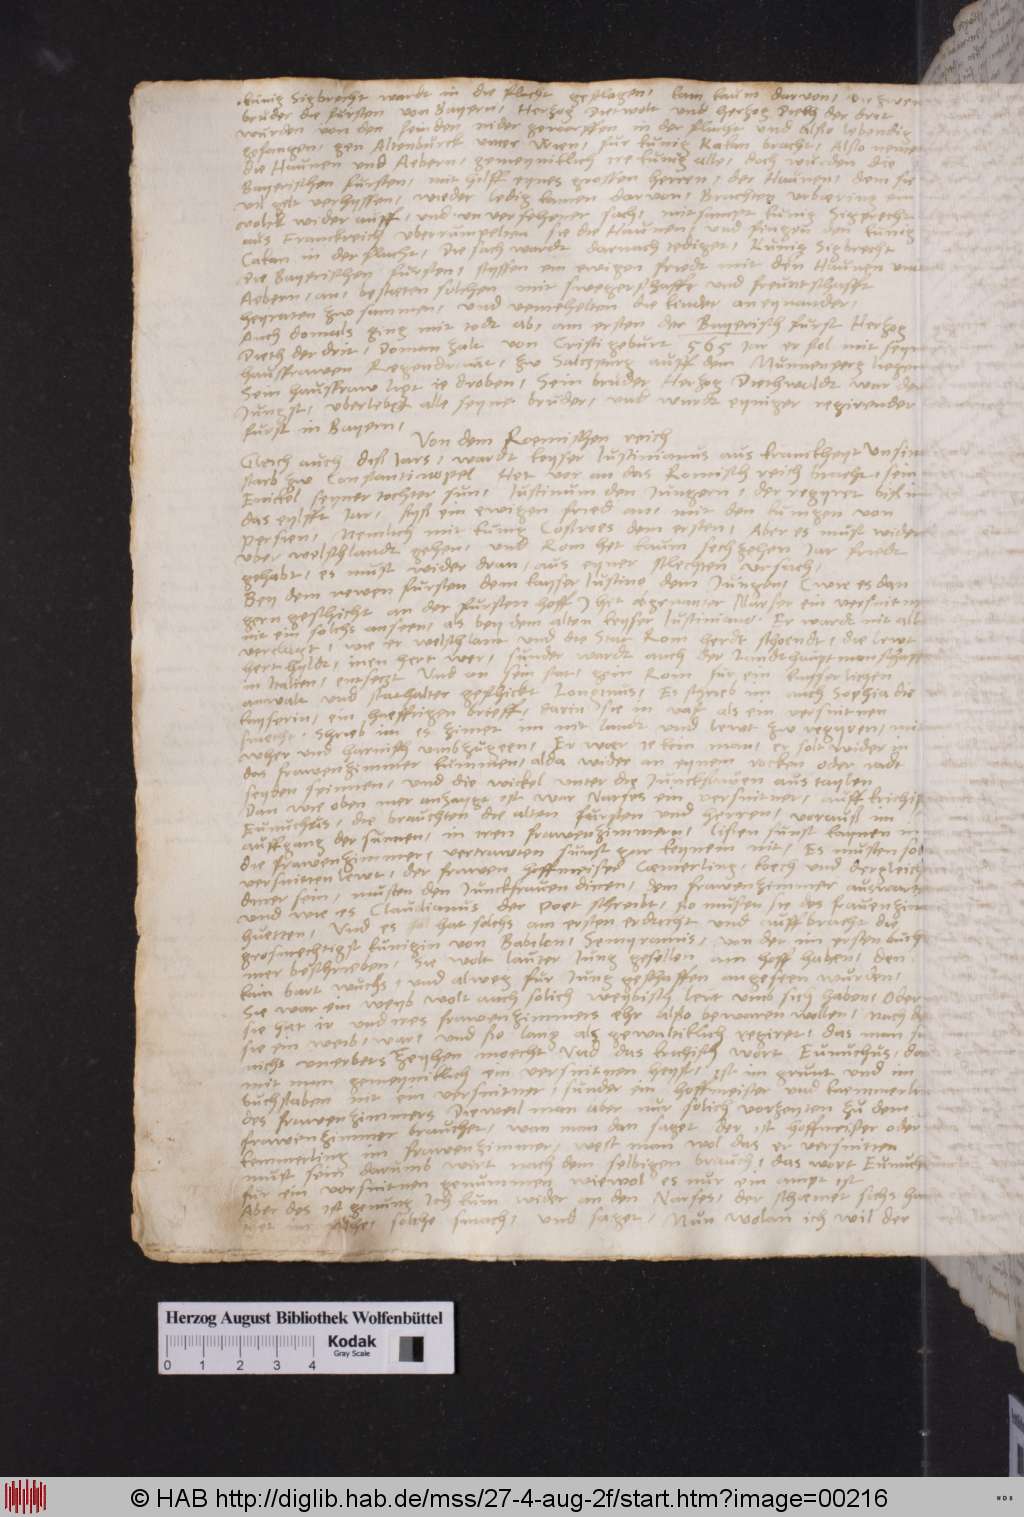 künig Sigbrecht wardt in die flucht geslagen, kam kaum darvon, die zwen
brüder die fürsten von Bayern, Herzog Dietwolt und herzog Dieth der drit
wurden von den feinden nider geworffen in der flucht und also lebendig
gefangen, gen Altenburck unter Wien, für künig Katan bracht, Also nenen
die Haunen und Aebern, gemeyniklich ire künig alle, doch wurden die
Bayerischen fürsten, mit hilff eynes grossen herren, der Haunen, dem sie
vil gelt verhyssen, wieder ledig kamen darvon, Brachten urbaring ein
volck wider auff, und unversehener sach, mitsampt künig Sigprecht
aus Franckreich uberrumpelten sie die Haunen, und fingen den künig
Catan in der flucht, Die sach wardt darnach tediget, Künig Sigbrecht
die Bayerischen fürsten, styssen ein ewigen friedt mit den Haunen und
Aebern, an, besteten solchen mit swegerschafft und freuntschafft
heyraten zw sammen, und vermehelten die kinder an eynander,
Auch domals ging mit todt ab, am ersten der Bayerisch fürst Herzog
Dieth der drit, Doman zalt von Cristi geburt 565 Jar er sol mit seyner
hausfrawen Regendraut, zw Saltzpurg auff dem Nunnenperg liegen
Sein hausfraw ligt ie droben, Sein brüder Herzog Diethwaldt war der
Jungst, uberlebtt alle seyne brüder, und wurdt eyniger regirender
fürst in Bayern,
Von dem Roemischen reich
Gleich auch diß Jars, wardt keyser Justinianus aus kranckheyt unsin
starb zw Constantinopel Het vor an das Romisch reich bracht, sein
Enickel seyner tochter sun, Justinum den Jungern, der regyret biß in
das eylfft Jar, styß ein ewigen fried an, mit den künigen von
Persien, Nemlich mit künig Cosroes dem ersten, Aber es must wider
uber welschlandt gehen, und Rom het kaum sechzehen Jar friedt
gehabt, es must wider dran, aus eyner slechten ursach,
Bey dem newen fürsten dem kayser Justino dem Jungen, (wie es dan
gern geschicht an der fürsten hoff) het obgenanter Narses ein versnitner
nit ein solchs ansehen, als bey dem alten keyser Justiniano. Er wardt mit all
verclagt, wie er welschlant und die Stat Rom herdt schendt, die lewt
hert hyldt, inen hert wer, sunder wardt auch der Landthauptmanschafft
in Italien, entsetzt Und an sein stat, gein Rom für ein kayserlichen
anwalt und stathalter geschickt Longinus, Es schrieb im auch Sophia die
kayserin, ein hoeffrigen brieff, darin sie in vast als ein versnitnen
smecht. Schrieb im es zimet im nit landt und lewt zw regyren, mit
wher und harnisch umbzugeen, Er war ie kein man, er solt wider in
das frawenzimmer kummen, alda wider an eynem rocken oder radt
seyden spinnen, und die wickel unter die Junckfrauen aus taylen
Dan wie oben mer anzaygt ist war Narses ein versnitner, auff krichisch
Eunuchus, die brauchten die alten fürsten und herren, vorauß im
auffgang der sunnen, in iren frawenzimmern, liesen sunst kaynen in
die frawenzimmer, vertrawten sunst gar keynem nit, Es musten sol
versnitten lewt, der frawen hoffmeister Caemerling, koech und dergleich
diner sein, musten den Junckfrauen dinen, dem frawenzimmer auswart
und wie es Claudianus der Poet schreibt, so musten sie des frauenzim
huetten, Und es hat solchs am ersten erdacht und auffbracht die
grosmechtigst künigin von Babilon, Semyramis, von der im ersten buch
mer beschrieben, Sie wolt lauter Jung gesellen am hoff haben, den
kain bart wuchs, und alweg für Jung geschaffen angeseen wurden,
Sie war ein weyb wolt auch solich weybisch lewt umb sich haben, Ober
sie hat ir und ires frawenzimmers ehr also bewaren wollen, nach d
sie ein weib, war, und so lang als gewaltiklich regiret, das man ir
nichs unerbers zeyhen moecht Und das krichisch wort Eunuchus, do
mit man gemeyniklich ein versnitnen heyst, ist im grunt und im
buchstaben nit ein versnitner, sunder ein hoffmeister und kaemmerling
des frawenzimmers Dieweil man aber nur solich verschnitten zu dem
frawenzimmer brauchet, wan man dan saget der ist hoffmeister oder
kemmerling im frawenzimmer, west man wol das er versnitten
must sein darumb wirt nach dem selbigen brauch, das wort Eunuch
für ein versnitnen genummen wiewol es nur ein ampt ist
Aber des ist genung Ich kum wider an den Narses, der schemet sichs ha
tuet im solche smach, und saget, Nun wolan ich wil der
Herzog August Bibliothek Wolfenbüttel
Kodak
Gray Scale
0 1 2 3 4
© HAB http://diglib.hab.de/mss/27-4-aug-2f/start.htm?image=00216